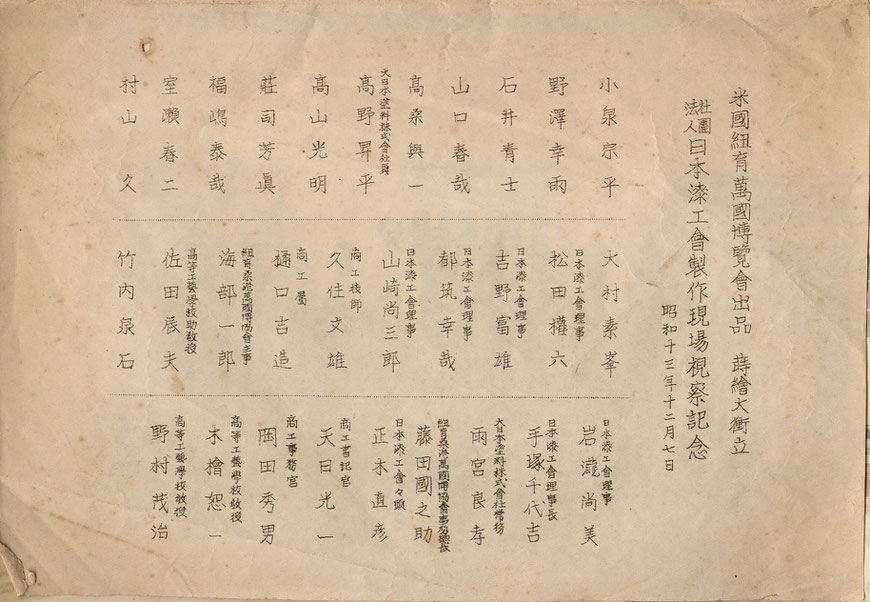 米國紐育萬國博覽會出品 蒔繪大衝立
社團法人日本漆工會製作現場視察記念
昭和十三年十二月七日
小泉宗平
野澤幸雨
石井青士
山口春哉
髙桑與一
大日本塗料株式會社員
髙野昇平
髙山光明
莊司芳眞
福嶋泰哉
室瀬春二
村山久
大村素峯
日本漆工會理事
松田權六
日本漆工會理事
吉野富雄
日本漆工會理事
都筑幸哉
日本漆工會理事
山崎尚三郎
商工技師
久住文雄
商工屬
樋口吉造
紐育桑港萬國博協會主事
海部一郎
高等工藝學校助敎授
佐田辰夫
竹内泉石
日本漆工會理事
岩瀧尚美
日本漆工會理事長
手塚千代吉
大日本塗料株式會社常務
雨宮良孝
紐育桑港萬國博協會事務總長
藤田國之助
日本漆工會々頭
正木直彦
商工書記官
天日光一
商工事務官
岡田秀男
高等工藝學校敎授
木檜恕一
高等工藝學校敎授
野村茂治